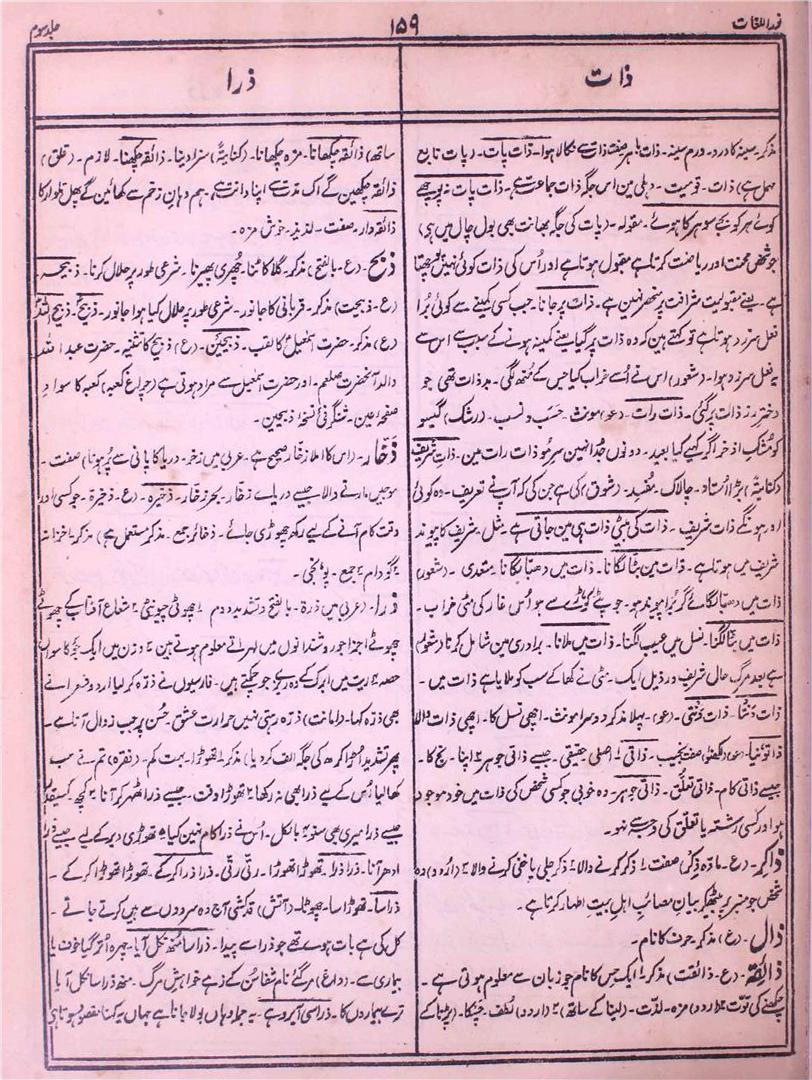 نور اللغات
۱۵۹
جلد سوم
ذات
ذرا
مذکر۔ سینہ کا درد۔ ورم سینہ۔ ذات ہر صفت ذات سے نکالا ہوا۔ ذات پات۔ (پات تابع
مہمل ہے) ذات۔ قومیت۔ دہلی میں اس جگہ ذات جماعت ہے۔ ذات پات نہ پوچھے
کوئے ہر کو بھجے سو ہر کا ہوئے۔ مقولہ۔ (پات کی جگہ بھانت بھی بول چال میں ہی)
جو شخص محنت اور ریاضت کرتا ہے مقبول ہوتا ہے اور اُس کی ذات کوئی نہیں پوچھتا
ہے۔ یعنے مقبولیت شرافت پر منحصر نہیں ہے۔ ذات پر جانا۔ جب کسی کمینے سے کوئی بُرا
فعل سرزد ہوتا ہے تو کہتے ہیں کہ وہ ذات پر گیا یعنے کمینہ ہونے کے سبب سے اس سے
یہ فعل سرزد ہوا۔ (شعور) اس نے اُسے خراب کیا جس کے منھ لگی۔ بد ذات تھی جو
دختر رز ذات پر گئی۔ ذات رات۔ (عو) مونث۔ حسب و نسب۔ (رشک) گیسو
کو مشک اذخر اگر کہیے کیا بعید۔ دونوں جُدا نہیں سر مو ذات رات میں۔ ذات شریف
(کنایۃً) بڑا اُستاد۔ چالاک۔ مفسد۔ (شوق) کی ہے جن کی کہ آپ نے تعریف۔ وہ کوئی
اور ہونگے ذات شریف۔ ذات کی بیٹی ذات ہی میں جاتی ہے۔ مثل۔ شریف کا پیوند
شریف میں ہوتا ہے۔ ذات میں بٹا لگانا۔ ذات میں دھبا لگانا۔ متعدی۔ (شعور)
ذات میں دھبا لگائے گر بُرا پیوند ہو۔ جو پٹے کوڑے سے ہو اُس غار کی مٹی خراب۔
ذات میں بٹا لگنا۔ نسل میں عیب لگنا۔ ذات میں ملانا۔ برادری میں شامل کرنا (شعور)
ہے بعد مرگ حال شریف و رذیل ایک۔ مٹی نے کھا کے سب کو ملایا ہے ذات میں۔
(عو)۔ پہلا مذکر دوسرا مونث۔ اچھی نسل کا۔ اچھی ذات والا
(عو) (لکھنؤ) صفت نجیب۔ ذاتی ۱ اصلی حقیقی۔ جیسے ذاتی جوہر ۲ اپنا۔ نج کا۔
جیسے ذاتی کام۔ ذاتی تعلق۔ ذاتی جوہر۔ وہ خوبی جو کسی شخص کی ذات میں خود موجود
ہو اور کسی رشتہ یا تعلق کی وجہ سے نہو۔
ذاکر۔ (ع۔ مادّہ ذکر) صفت ۱ ذکر کرنے والا ۲ ذکر جلی یا خفی کرنے والا ۳ (اردو) وہ
شخص جو منبر پر بیٹھکر بیان مصائب اہل بیت اطہار کرتا ہے۔
ذال۔ (ع) مذکر۔ حرف کا نام۔
ذائقہ۔ (ع۔ ذائقت) مذکر ۱ ایک حس کا نام جو زبان سے معلوم ہوتی ہے۔
چکھنے کی قوّت ۲ (اردو) مزہ۔ لذّت۔ (لینا کے ساتھ) ۳ (اردو) لطف۔ چسکا۔ (پڑنا کے
ساتھ) ذائقہ چکھانا۔ مزہ چکھانا۔ (کنایۃً) سزا دینا۔ ذائقہ چکھنا۔ لازم۔ (قلق)
ذائقہ چکھیں گے اک مدت سے اپنا دانت ہے۔ ہم دہانِ زخم سے کھائیں گے پھل تلوار کا
ذائقہ دار۔ صفت۔ لذیذ۔ خوش مزہ۔
ذبح۔ (ع۔ بالفتح) مذکر۔ گلا کاٹنا۔ چھری پھیرنا۔ شرعی طور پر حلال کرنا۔ ذبیحہ۔
(ع۔ ذبیحت) مذکر۔ قربانی کا جانور۔ شرعی طور پر حلال کیا ہوا جانور۔ ذبیح۔ ذبیح اللہ
(ع) مذکر۔ حضرت اسمٰعیل کا لقب۔ ذبیحین۔ (ع) ذبیح کا تثنیہ۔ حضرت عبد اللہ
والد آنحضرت صلعم۔ اور حضرت اسمٰعیل سے مراد ہوتی ہے (چراغ کعبہ) کعبہ کا سواد
صفحہ عین۔ شنگرفیٔ نسخۂ ذبیحین۔
ذخّار۔ (اس کا املا زخار صحیح ہے۔ عربی میں زخر۔ دریا کا پانی سے پُر ہونا) صفت۔
موجیں مارنے والا جیسے دریاے زخار۔ بحر زخار۔ ذخیرہ۔ (ع۔ ذخیرۃ۔ جو کسی اور
وقت کام آنے کے لیے رکھ چھوڑی جائے۔ ذخائر جمع۔ مذکر مستعمل ہے) مذکر ۱ خزانہ
۲ گودام ۳ جمع۔ پونجی۔
ذرا۔ (عربی میں ذرۃ۔ بالفتح و تشدید دوم ۱ چھوٹی چیونٹی ۲ شعاع آفتاب کے چھوٹے
چھوٹے اجزا جو روشندانوں میں لہراتے معلوم ہوتے ہیں ۳ وزن میں ایک جَو کا سواں
حصہ ۴ ریت میں ابرک کے وہ ریزے جو چمکتے ہیں۔ فارسیوں نے ذرہ کر لیا اردو شعرا نے
بھی ذرہ کہا۔ (امانت) ذرہ رہتی نہیں حرارت عشق۔ حُسن پر جب زوال آتا ہے۔
پھر تشدید اُڑا کر ھ کی جگہ الف کر دیا) مذکر ۱ تھوڑا۔ بہت کم۔ (فقرہ) تم نے سب
کھا لیا اُس کے لیے ذرا بھی نہ رکھا ۲ تھوڑا وقت۔ جیسے ذرا ٹھہر کر آنا ۳ کچھ۔ کسیقدر
جیسے ذرا میری بھی سنو ۴ بالکل۔ اُس نے ذرا کام نہیں کیا ۵ تھوڑی دیر کے لیے جیسے ذرا
ادھر آنا۔ ذرا ذرا۔ تھوڑا تھوڑا۔ رتی رتی۔ ذرا ذرا کر کے۔ تھوڑا تھوڑا کر کے۔
ذرا سا۔ تھوڑا سا۔ چھوٹا۔ (آتش) قد کشی آج وہ سرووں سے ہیں کرتے جاتے۔
کل کی ہے بات ہوے تھے جو ذرا سے پیدا۔ ذرا سا منھ نکل آیا۔ چہرہ اُتر گیا خوف یا
بیماری سے۔ (داغ) مر گئے نام شفا سُن کے زہے خواہش مرگ۔ منھ ذرا سا نکل آیا
ترے بیماروں کا۔ ذرا سی آبرو ہے۔ یہ جملہ وہاں بولا جاتا ہے جہاں یہ کہنا مقصود ہوتا ہی